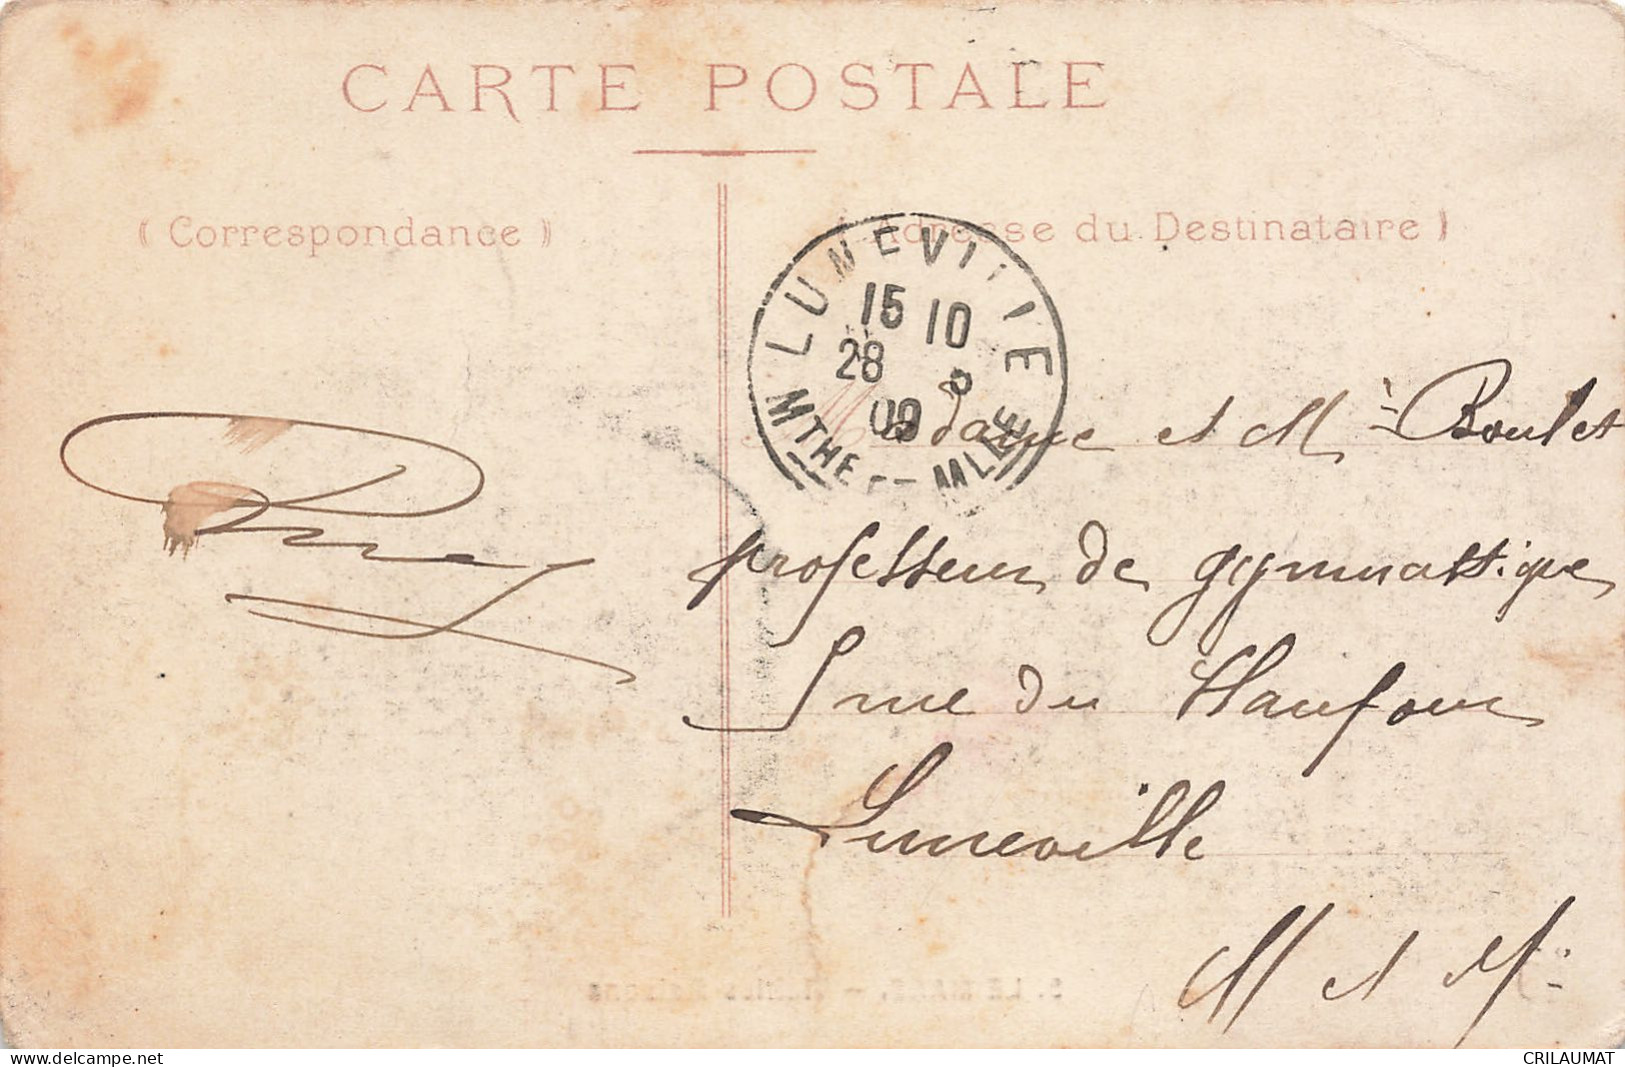 CARTE POSTALE
( Correspondance )
( Adresse du Destinataire )
LUNEVILLE
15 10
28 8
09
MTHE - MLLE
Madame et Mr Boulet
professeur de gymnastique
5 rue du Haufour
Luneville
M et M
LE MANS. -
CRILAUMAT